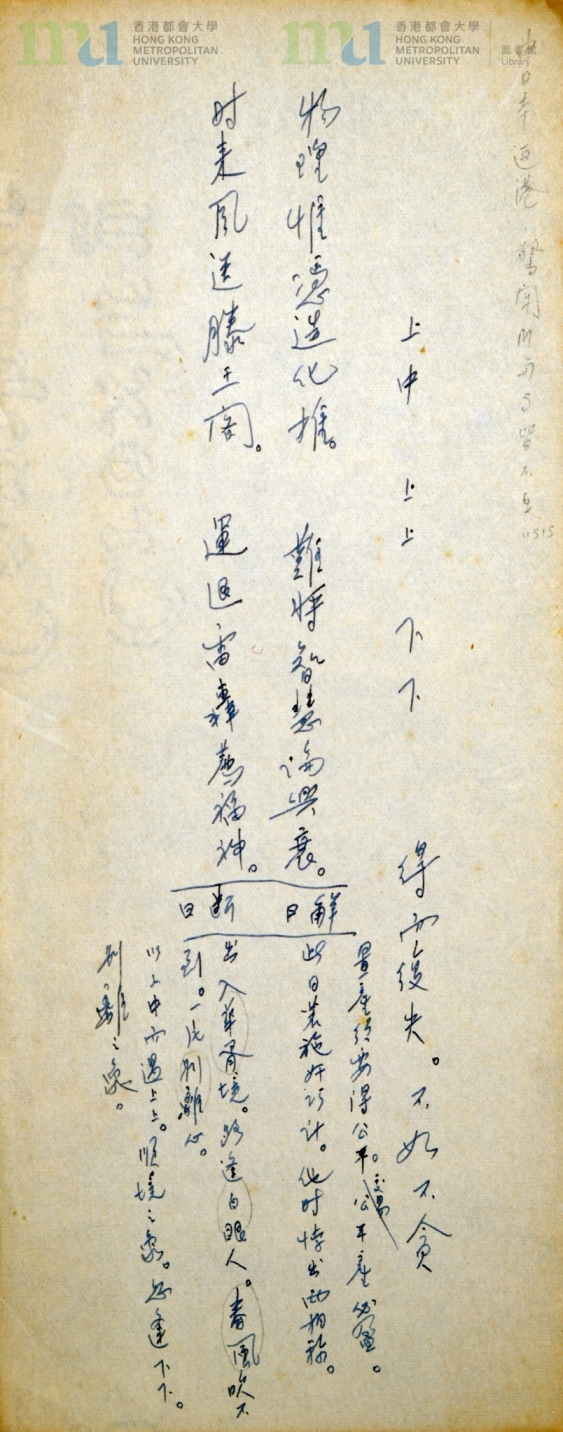 香港都會大學
HONG KONG
METROPOLITAN
UNIVERSITY
香港都會大學
HONG KONG
METROPOLITAN
UNIVERSITY
圖書館
Library
日本返港
上中 上上 下下
得而復失。不如不貪
物理惟憑造化推。難將智慧論興衰。
时来風送滕王阁。運退雷轟薦福碑。
解曰
置產須要得公平。公平交易產必盈。
此日若施奸巧计。他时悖出两相称。
断曰
出入華胥境。路逢白眼人。春風吹不
到。一片别離心。
以上中而遇上上。順境之象。忽逢下下。
别離之象。